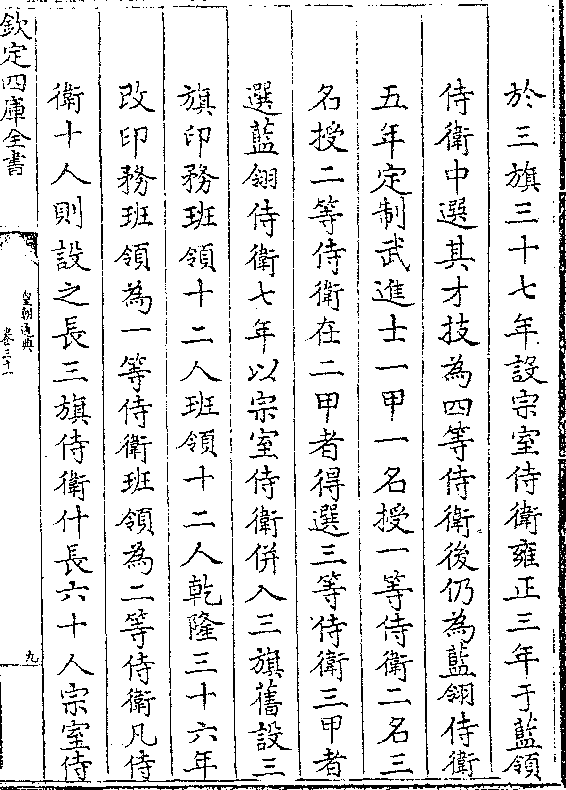 於三旗三十七年設宗室侍衛雍正三年于藍領
侍衛中選其才技為四等侍衛後仍為藍翎侍衛
五年定制武進士一甲一名授一等侍衛二名三
名授二等侍衛在二甲者得選三等侍衛三甲者
選藍翎侍衛七年以宗室侍衛併入三旗舊設三
旗印務班領十二人班領十二人乾隆三十六年
改印務班領為一等侍衛班領為二等侍衛凡侍
衛十人則設之長三旗侍衛什長六十人宗室侍
欽定四庫全書
皇朝通典
卷三十一
九